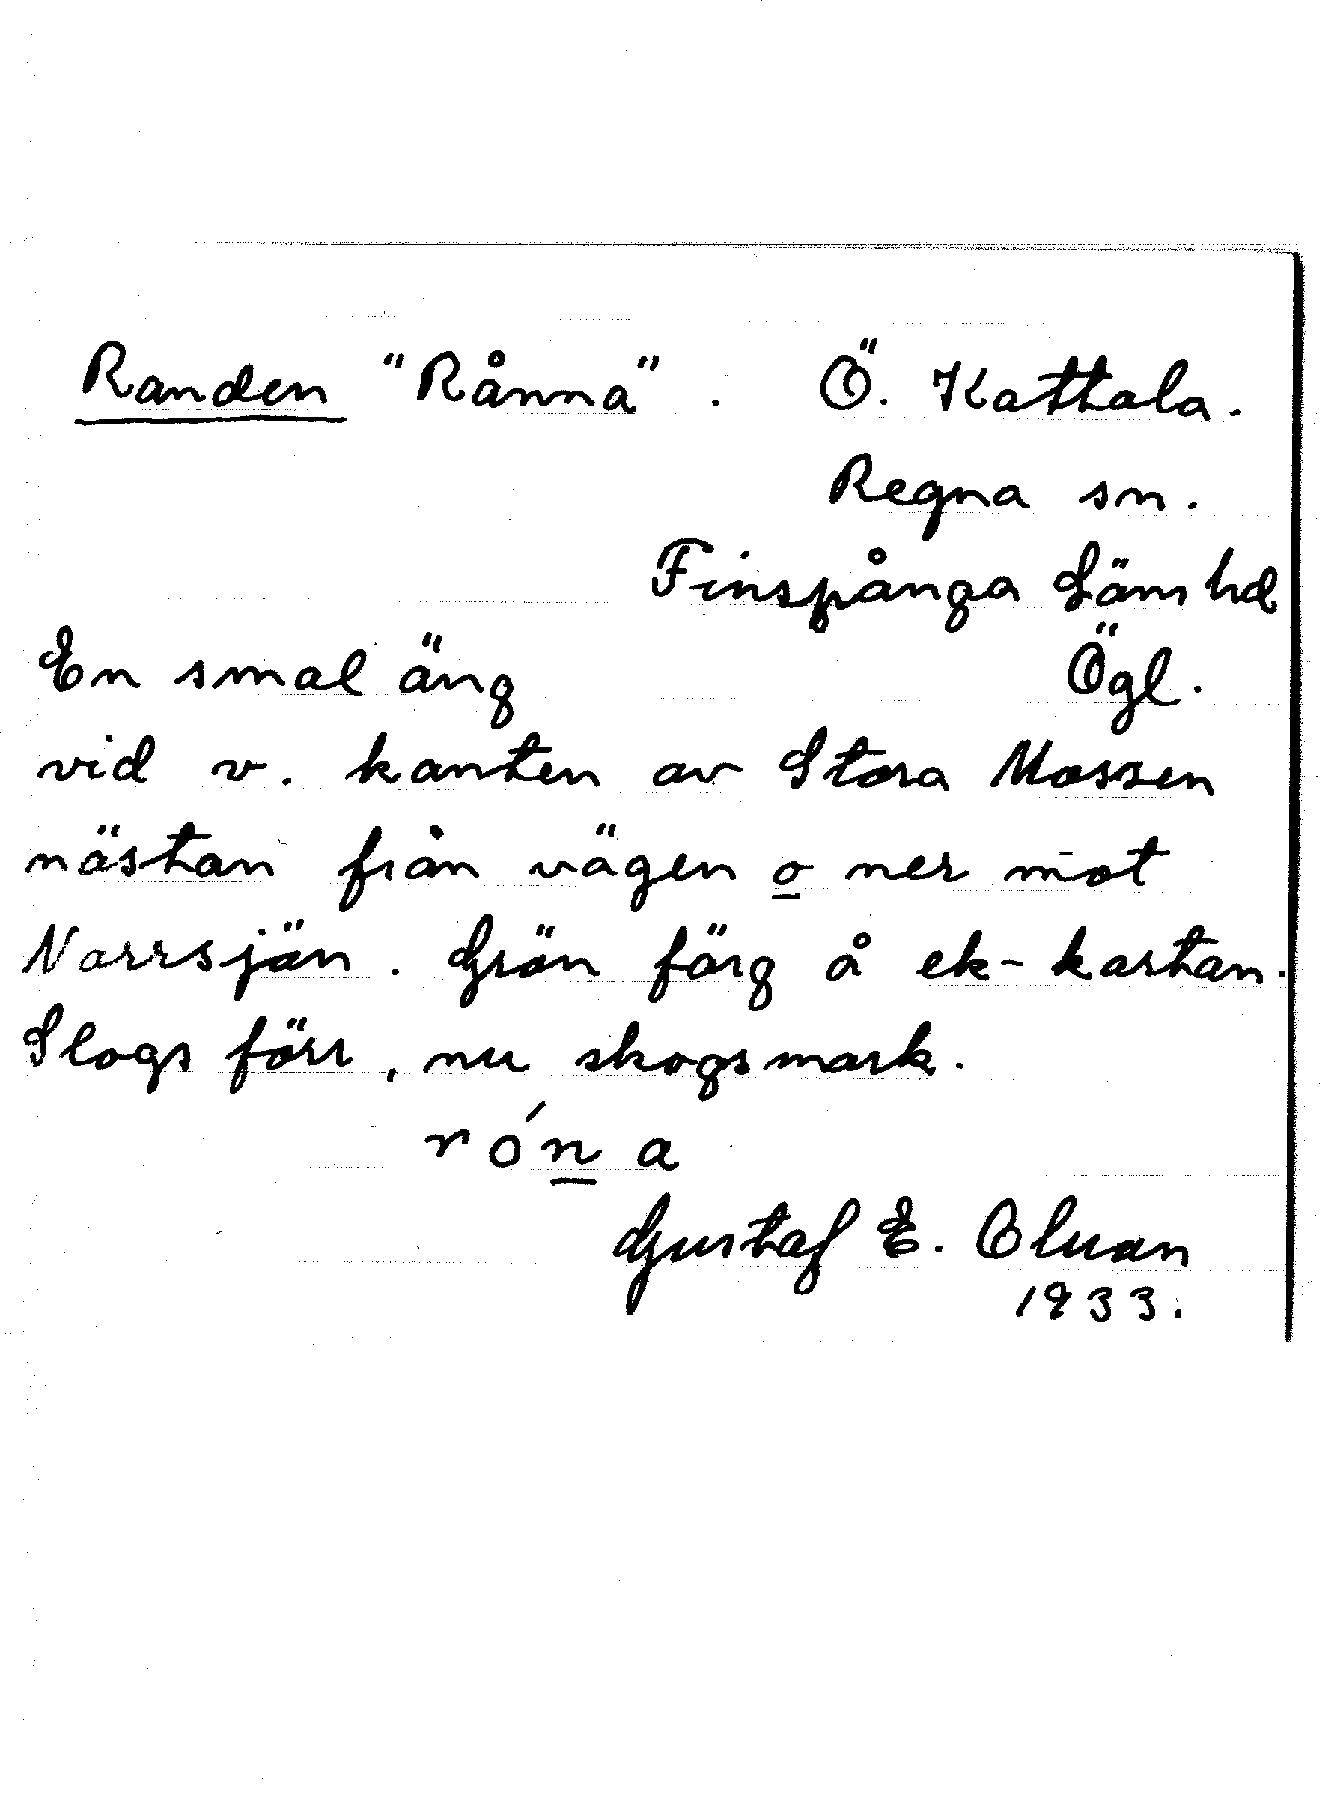 Randen "Rånna". Ö. Kattala.
Regna sn.
Finspånga Läns hd
En smal äng Ögl.
vid v. kanten av Stora Mossen
nästan från vägen o ner mot
Norrsjön. Grön färg å ek-kartan.
Slogs förr, nu skogsmark.
róna
Gustaf E.
1933.